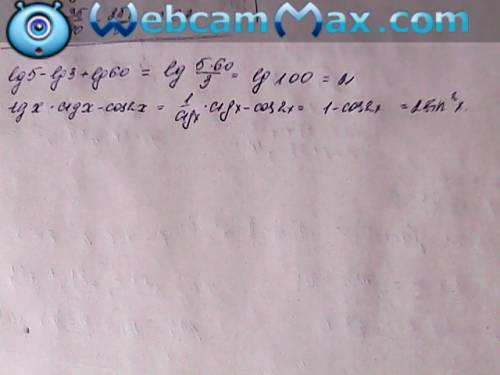 WebcamMax.com
lg5-lg3+lg60 = lg 5·60/3 = lg 100 = 2
tgx·ctgx-cos2x = 1/ctgx·ctgx-cos2x = 1-cos2x = 2sin²x.